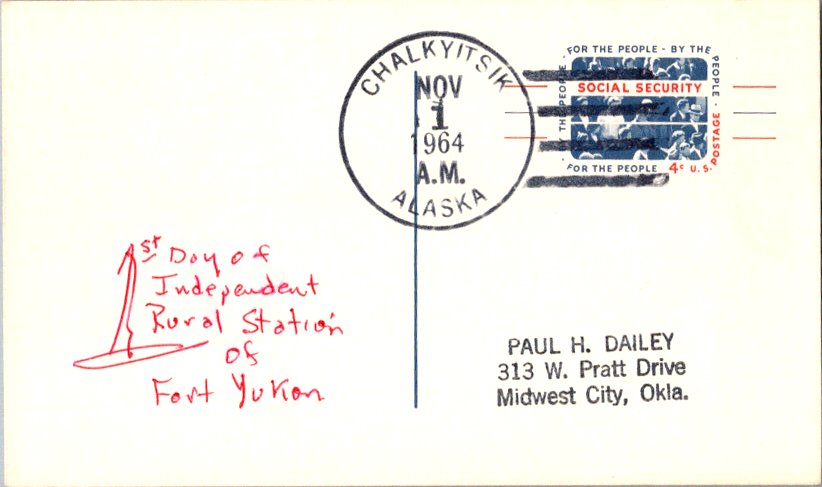 CHALKYITSIK
NOV
1
1964
A.M.
ALASKA
FOR THE PEOPLE - BY THE PEOPLE -
BY THE PEOPLE -
SOCIAL SECURITY
FOR THE PEOPLE 4c U.S. POSTAGE
1st Day of
Independent
Rural Station
of
Fort Yukon
PAUL H. DAILEY
313 W. Pratt Drive
Midwest City, Okla.